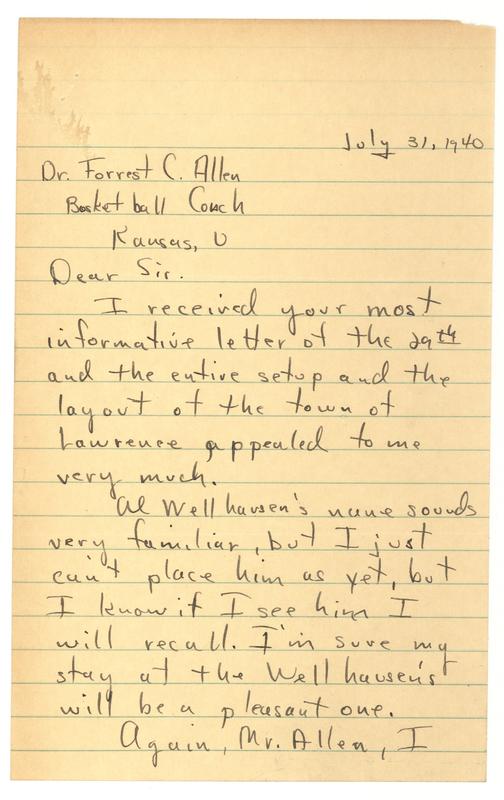 July 31, 1940
Dr. Forrest C. Allen
Basket ball Coach
Kansas, U
Dear Sir.
I received your most
informative letter of the 29th
and the entire setup and the
layout of the town of
Lawrence appealed to me
very much.
Al Wellhausen's name sounds
very familiar, but I just
can't place him as yet, but
I know if I see him I
will recall. I'm sure my
stay at the Wellhausen's
will be a pleasant one.
Again, Mr. Allen, I